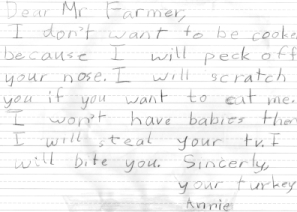 Dear Mr. Farmer,
I don't want to be cooke
because I will peck off
your nose. I will scratch
you if you want to eat me.
I won't have babies then
I will steal your tv. I
will bite you. Sincerly,
your turkey
Annie